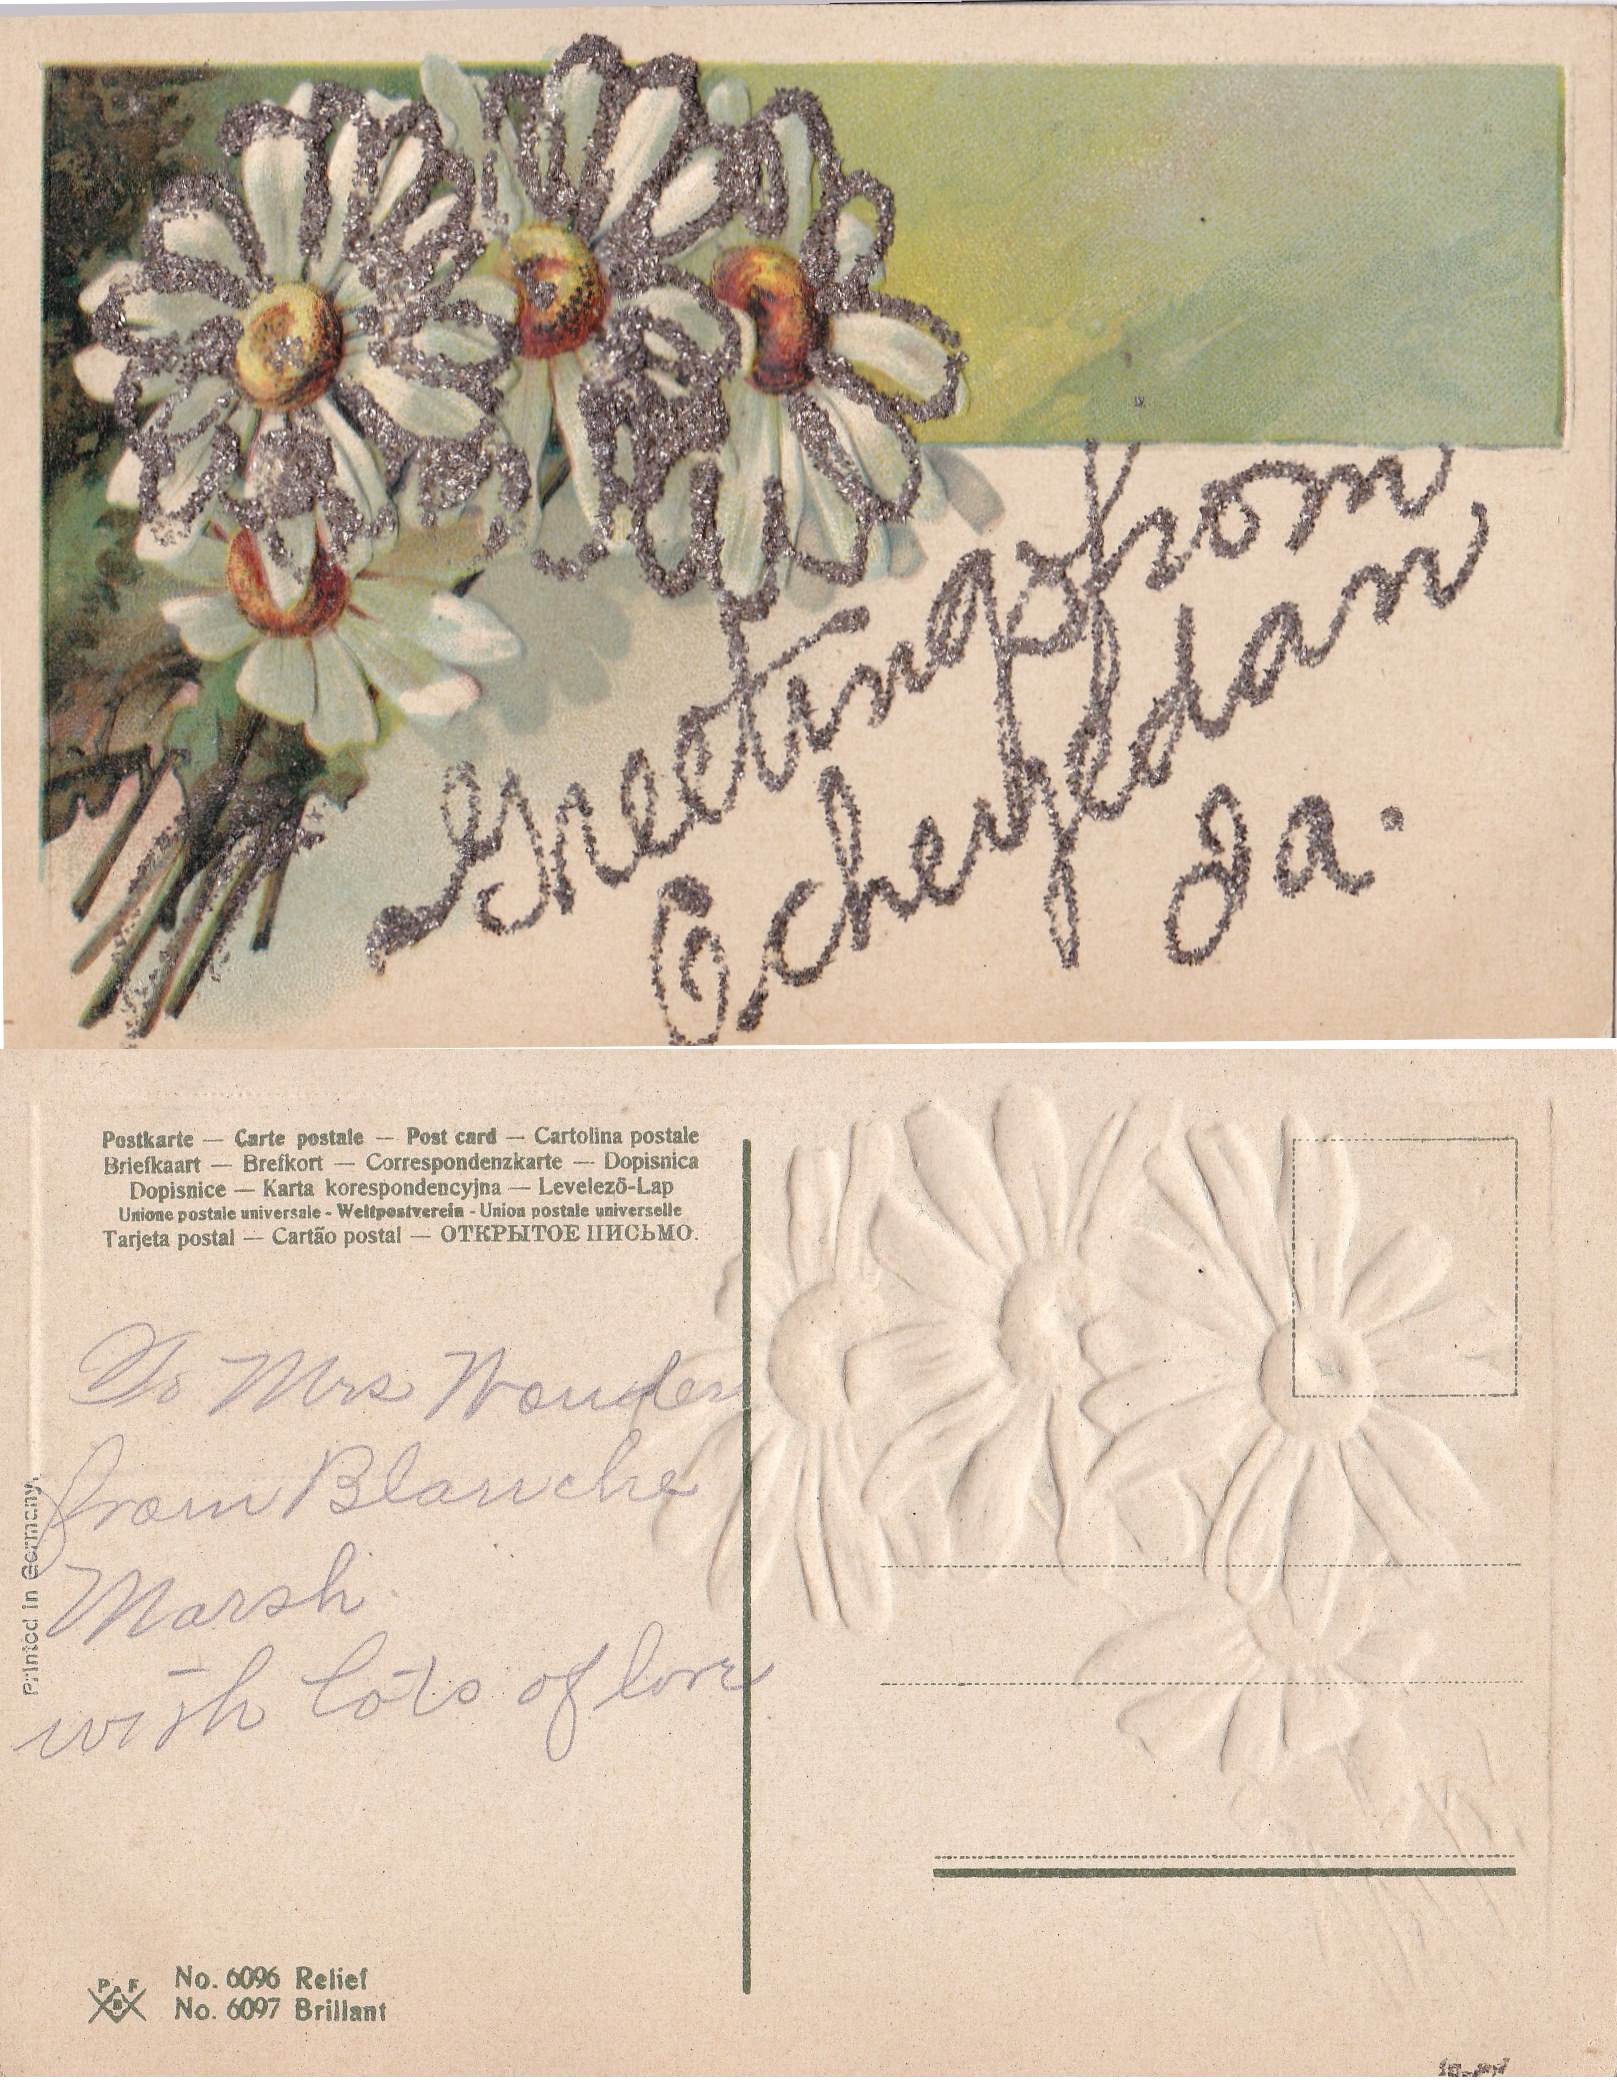 Greetings from
Ocheyedan
Ia.
Postkarte — Carte postale — Post card — Cartolina postale
Briefkaart — Brefkort — Correspondenzkarte — Dopisnica
Dopisnice — Karta korespondencyjna — Levelező-Lap
Unione postale universale - Weltpostverein - Union postale universelle
Tarjeta postal — Cartão postal — ОТКРЫТОЕ ПИСЬМО.
To Mrs Wander
from Blanche
Marsh.
with lots of love
Printed in Germany.
P F
B
No. 6096 Relief
No. 6097 Brillant